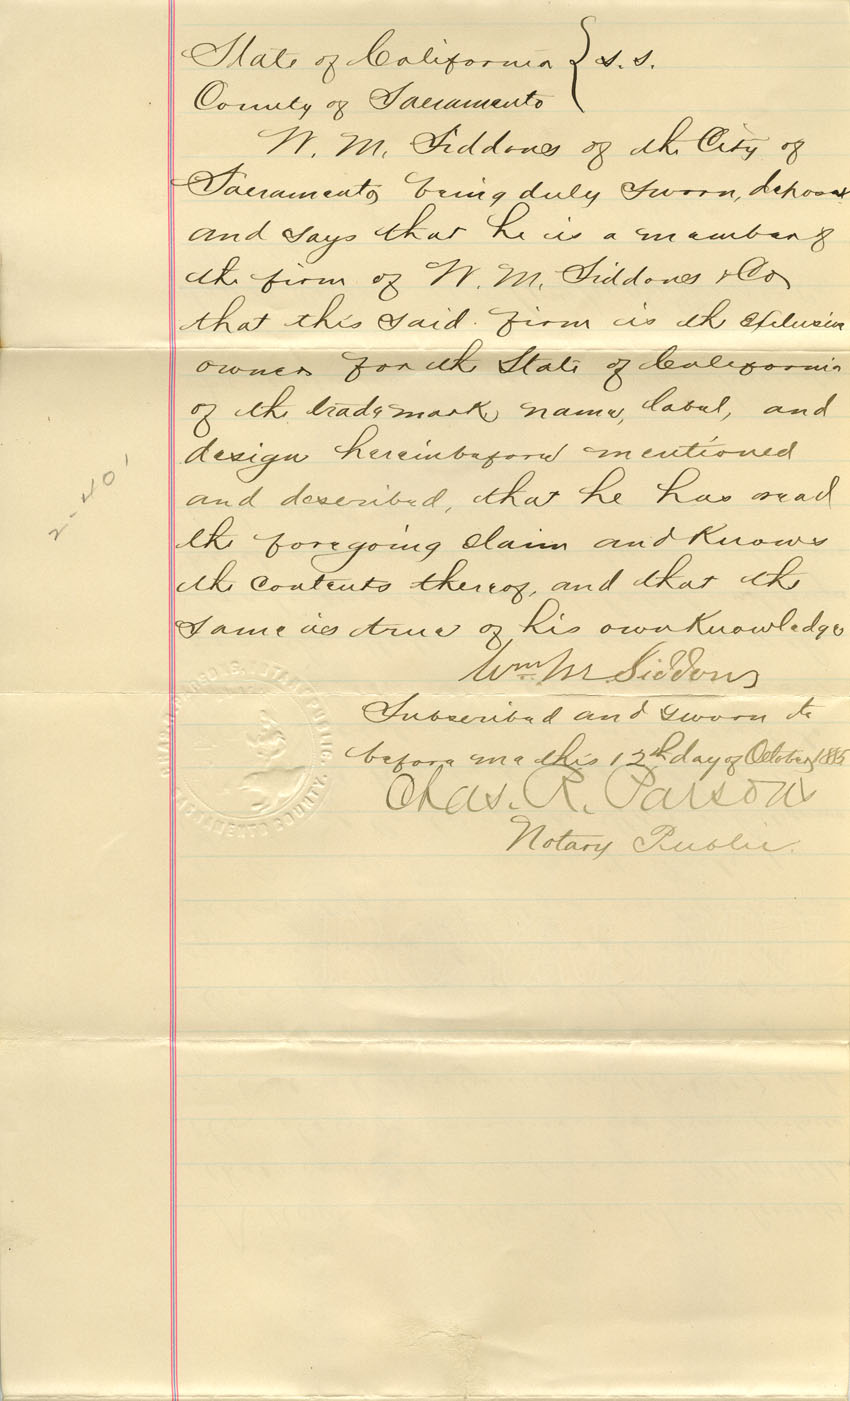 State of California } s.s.
County of Sacramento
W. M. Siddons of the City of
Sacramento, being duly sworn, deposes
and says that he is a member of
the firm of W. M. Siddons & Co,
that this said firm is the exclusive
owner for the State of California
of the trademark, name, label, and
design hereinbefore mentioned
and described, that he has read
the foregoing claim and knows
the contents thereof, and that the
same is true of his own knowledge
Wm M. Siddons
Subscribed and sworn to
before me this 12th day of October, 1885
Chas. R. Parsons
Notary Public.
2-40'
NOTARY PUBLIC.
SACRAMENTO COUNTY.